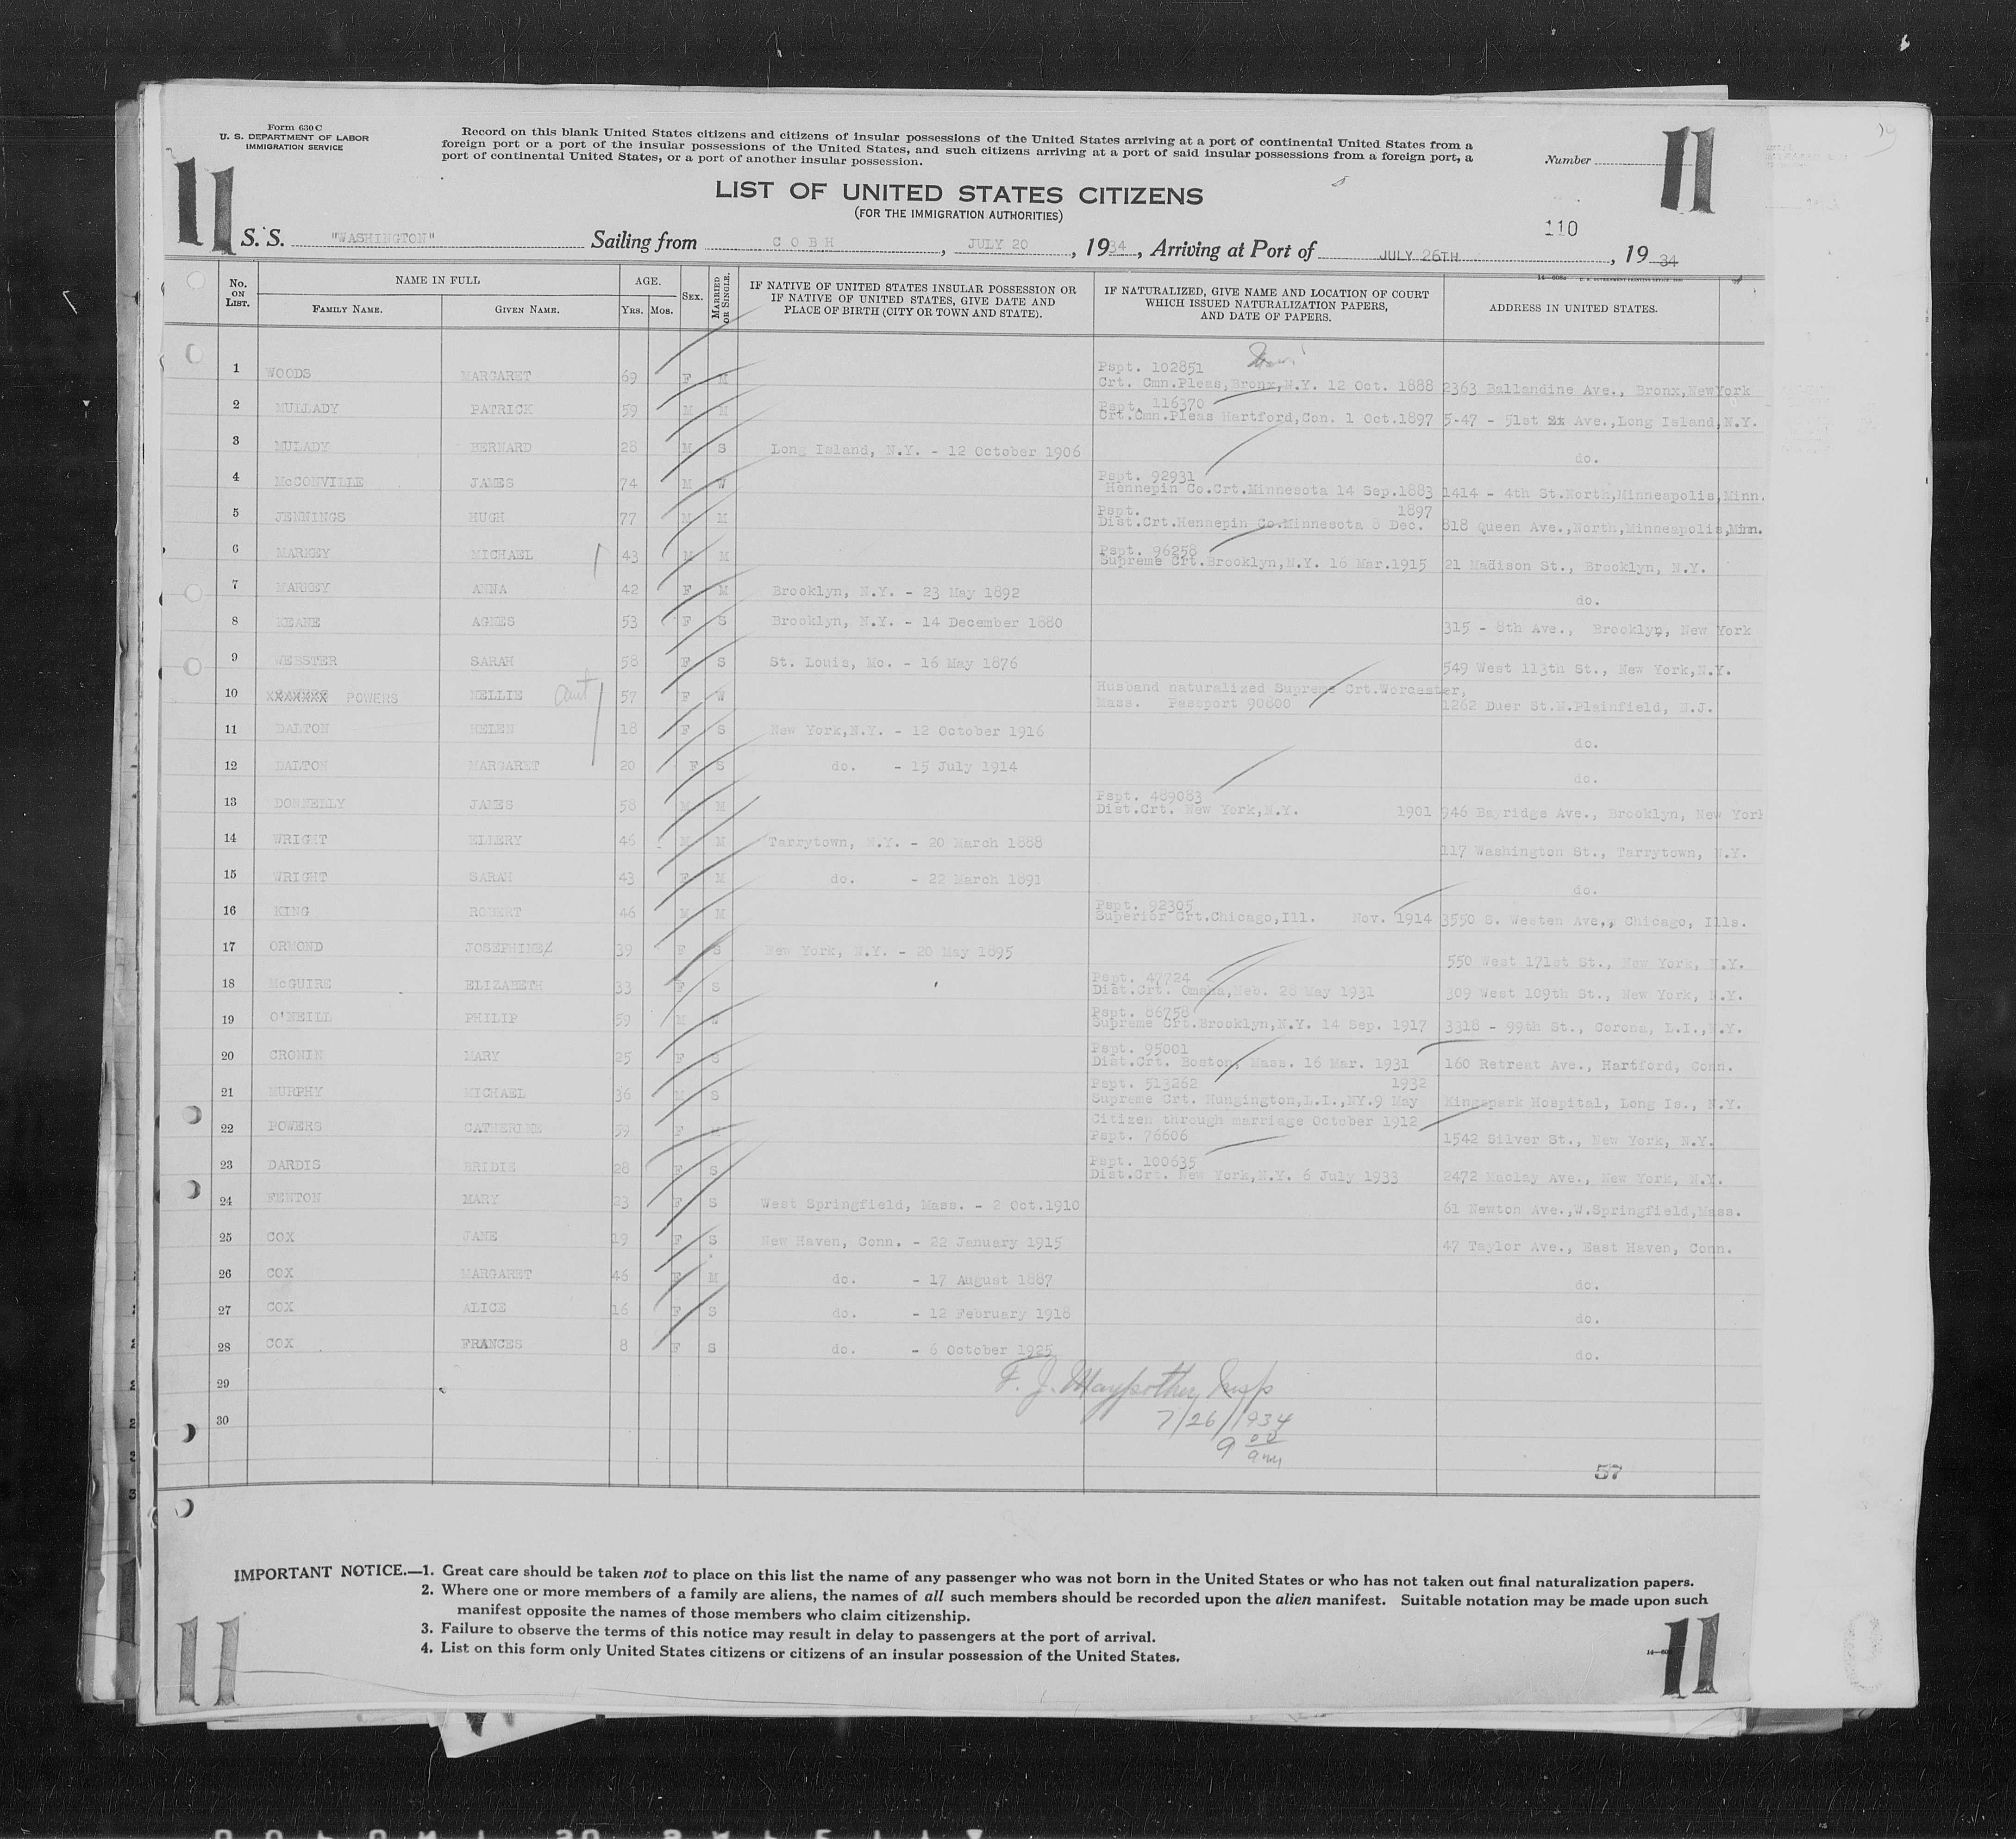 Form 630 C
U. S. DEPARTMENT OF LABOR
IMMIGRATION SERVICE
Record on this blank United States citizens and citizens of insular possessions of the United States arriving at a port of continental United States from a
foreign port or a port of the insular possessions of the United States, and such citizens arriving at a port of said insular possessions from a foreign port, a
port of continental United States, or a port of another insular possession.
Number
11
11
LIST OF UNITED STATES CITIZENS
(FOR THE IMMIGRATION AUTHORITIES)
110
S. S. "WASHINGTON" Sailing from COBH, JULY 20, 1934, Arriving at Port of JULY 26TH, 1934
No. ON LIST. NAME IN FULL FAMILY NAME. GIVEN NAME. AGE. YRS. MOS. SEX. MARRIED OR SINGLE. IF NATIVE OF UNITED STATES INSULAR POSSESSION OR IF NATIVE OF UNITED STATES, GIVE DATE AND PLACE OF BIRTH (CITY OR TOWN AND STATE). IF NATURALIZED, GIVE NAME AND LOCATION OF COURT WHICH ISSUED NATURALIZATION PAPERS, AND DATE OF PAPERS. ADDRESS IN UNITED STATES.
1 WOODS MARGARET 69 F M Pspt. 102851 Crt. Cmn.Pleas,Bronx,N.Y. 12 Oct. 1888 2363 Ballandine Ave., Bronx,NewYork
2 MULLADY PATRICK 59 M M Pspt. 116370 Crt.Cmn.Pleas Hartford,Con. 1 Oct.1897 5-47 - 51st Ave.,Long Island,N.Y.
3 MULADY BERNARD 28 M S Long Island, N.Y. - 12 October 1906 do.
4 McCONVILLE JAMES 74 M W Pspt. 92931 Hennepin Co.Crt.Minnesota 14 Sep.1883 1414 - 4th St.North,Minneapolis,Minn.
5 JENNINGS HUGH 77 M M Pspt. 1897 Dist.Crt.Hennepin Co.Minnesota 8 Dec. 818 Queen Ave.,North,Minneapolis,Minn.
6 MARKEY MICHAEL 43 M M Pspt. 96258 Supreme Crt.Brooklyn,N.Y. 16 Mar.1915 21 Madison St., Brooklyn, N.Y.
7 MARKEY ANNA 42 F M Brooklyn, N.Y. - 23 May 1892 do.
8 KEANE AGNES 53 F S Brooklyn, N.Y. - 14 December 1880 315 - 8th Ave., Brooklyn, New York
9 WEBSTER SARAH 58 F S St. Louis, Mo. - 16 May 1876 549 West 113th St., New York,N.Y.
10 XXXXXXX POWERS NELLIE aunt 57 F W Husband naturalized Supreme Crt.Worcester, Mass. Passport 90800 1262 Duer St.N.Plainfield, N.J.
11 DALTON HELEN 18 F S New York,N.Y. - 12 October 1916 do.
12 DALTON MARGARET 20 F S do. - 15 July 1914 do.
13 DONNELLY JAMES 58 M M Pspt. 489083 Dist.Crt. New York,N.Y. 1901 946 Bayridge Ave., Brooklyn, New York
14 WRIGHT ELLERY 46 M M Tarrytown, N.Y. - 20 March 1888 117 Washington St., Tarrytown, N.Y.
15 WRIGHT SARAH 43 F M do. - 22 March 1891 do.
16 KING ROBERT 46 M M Pspt. 92305 Superior Crt.Chicago,Ill. Nov. 1914 3550 S. Westen Ave,, Chicago, Ills.
17 ORMOND JOSEPHINE 39 F S New York, N.Y. - 20 May 1895 550 West 171st St., New York, N.Y.
18 McGUIRE ELIZABETH 33 F S Pspt. 47724 Dist.Crt. Omaha,Neb. 28 May 1931 309 West 109th St., New York, N.Y.
19 O'NEILL PHILIP 59 M Pspt. 86758 Supreme Crt.Brooklyn,N.Y. 14 Sep. 1917 3318 - 99th St., Corona, L.I.,N.Y.
20 CRONIN MARY 25 F S Pspt. 95001 Dist.Crt. Boston, Mass. 16 Mar. 1931 160 Retreat Ave., Hartford, Conn.
21 MURPHY MICHAEL 36 M S Pspt. 513262 1932 Supreme Crt. Hungington,L.I.,NY.9 May Kingspark Hospital, Long Is., N.Y.
22 POWERS CATHERINE 59 F Citizen through marriage October 1912 Pspt. 76606 1542 Silver St., New York, N.Y.
23 DARDIS BRIDIE 28 F S Pspt. 100635 Dist.Crt. New York,N.Y. 6 July 1933 2472 Maclay Ave., New York, N.Y.
24 FENTON MARY 23 F S West Springfield, Mass. - 2 Oct.1910 61 Newton Ave.,W.Springfield,Mass.
25 COX JANE 19 F S New Haven, Conn. - 22 January 1915 47 Taylor Ave., East Haven, Conn.
26 COX MARGARET 46 F M do. - 17 August 1887 do.
27 COX ALICE 16 F S do. - 12 February 1918 do.
28 COX FRANCES 8 F S do. - 6 October 1925 do.
29
30
F. J. Maypother Insp
7/26/1934
9 00 am
57
IMPORTANT NOTICE.—1. Great care should be taken not to place on this list the name of any passenger who was not born in the United States or who has not taken out final naturalization papers.
2. Where one or more members of a family are aliens, the names of all such members should be recorded upon the alien manifest. Suitable notation may be made upon such
manifest opposite the names of those members who claim citizenship.
3. Failure to observe the terms of this notice may result in delay to passengers at the port of arrival.
4. List on this form only United States citizens or citizens of an insular possession of the United States.
11
11